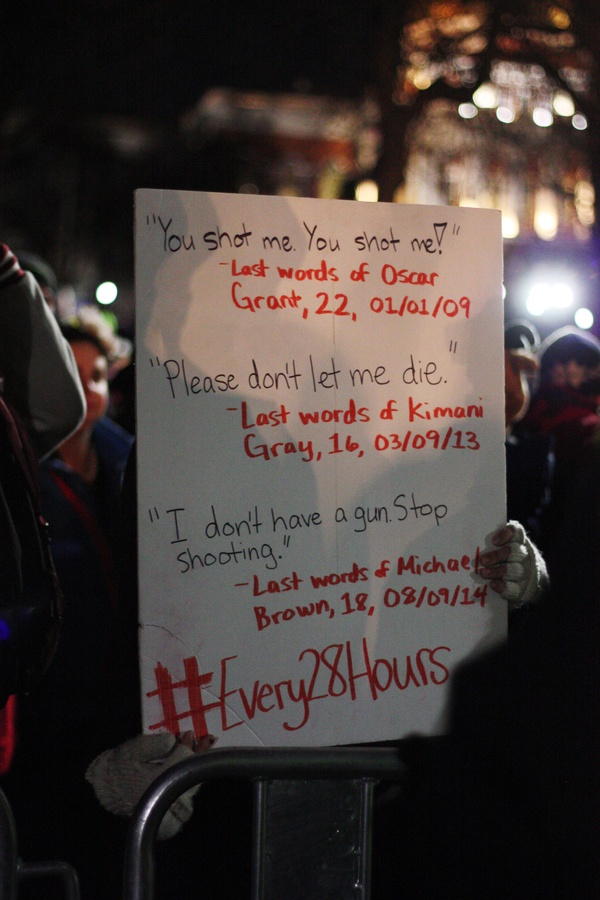 "You shot me. You shot me!"
-Last words of Oscar
Grant, 22, 01/01/09
"Please don't let me die."
-Last words of Kimani
Gray, 16, 03/09/13
"I don't have a gun. Stop
shooting."
-Last words of Michael
Brown, 18, 08/09/14
#Every28Hours